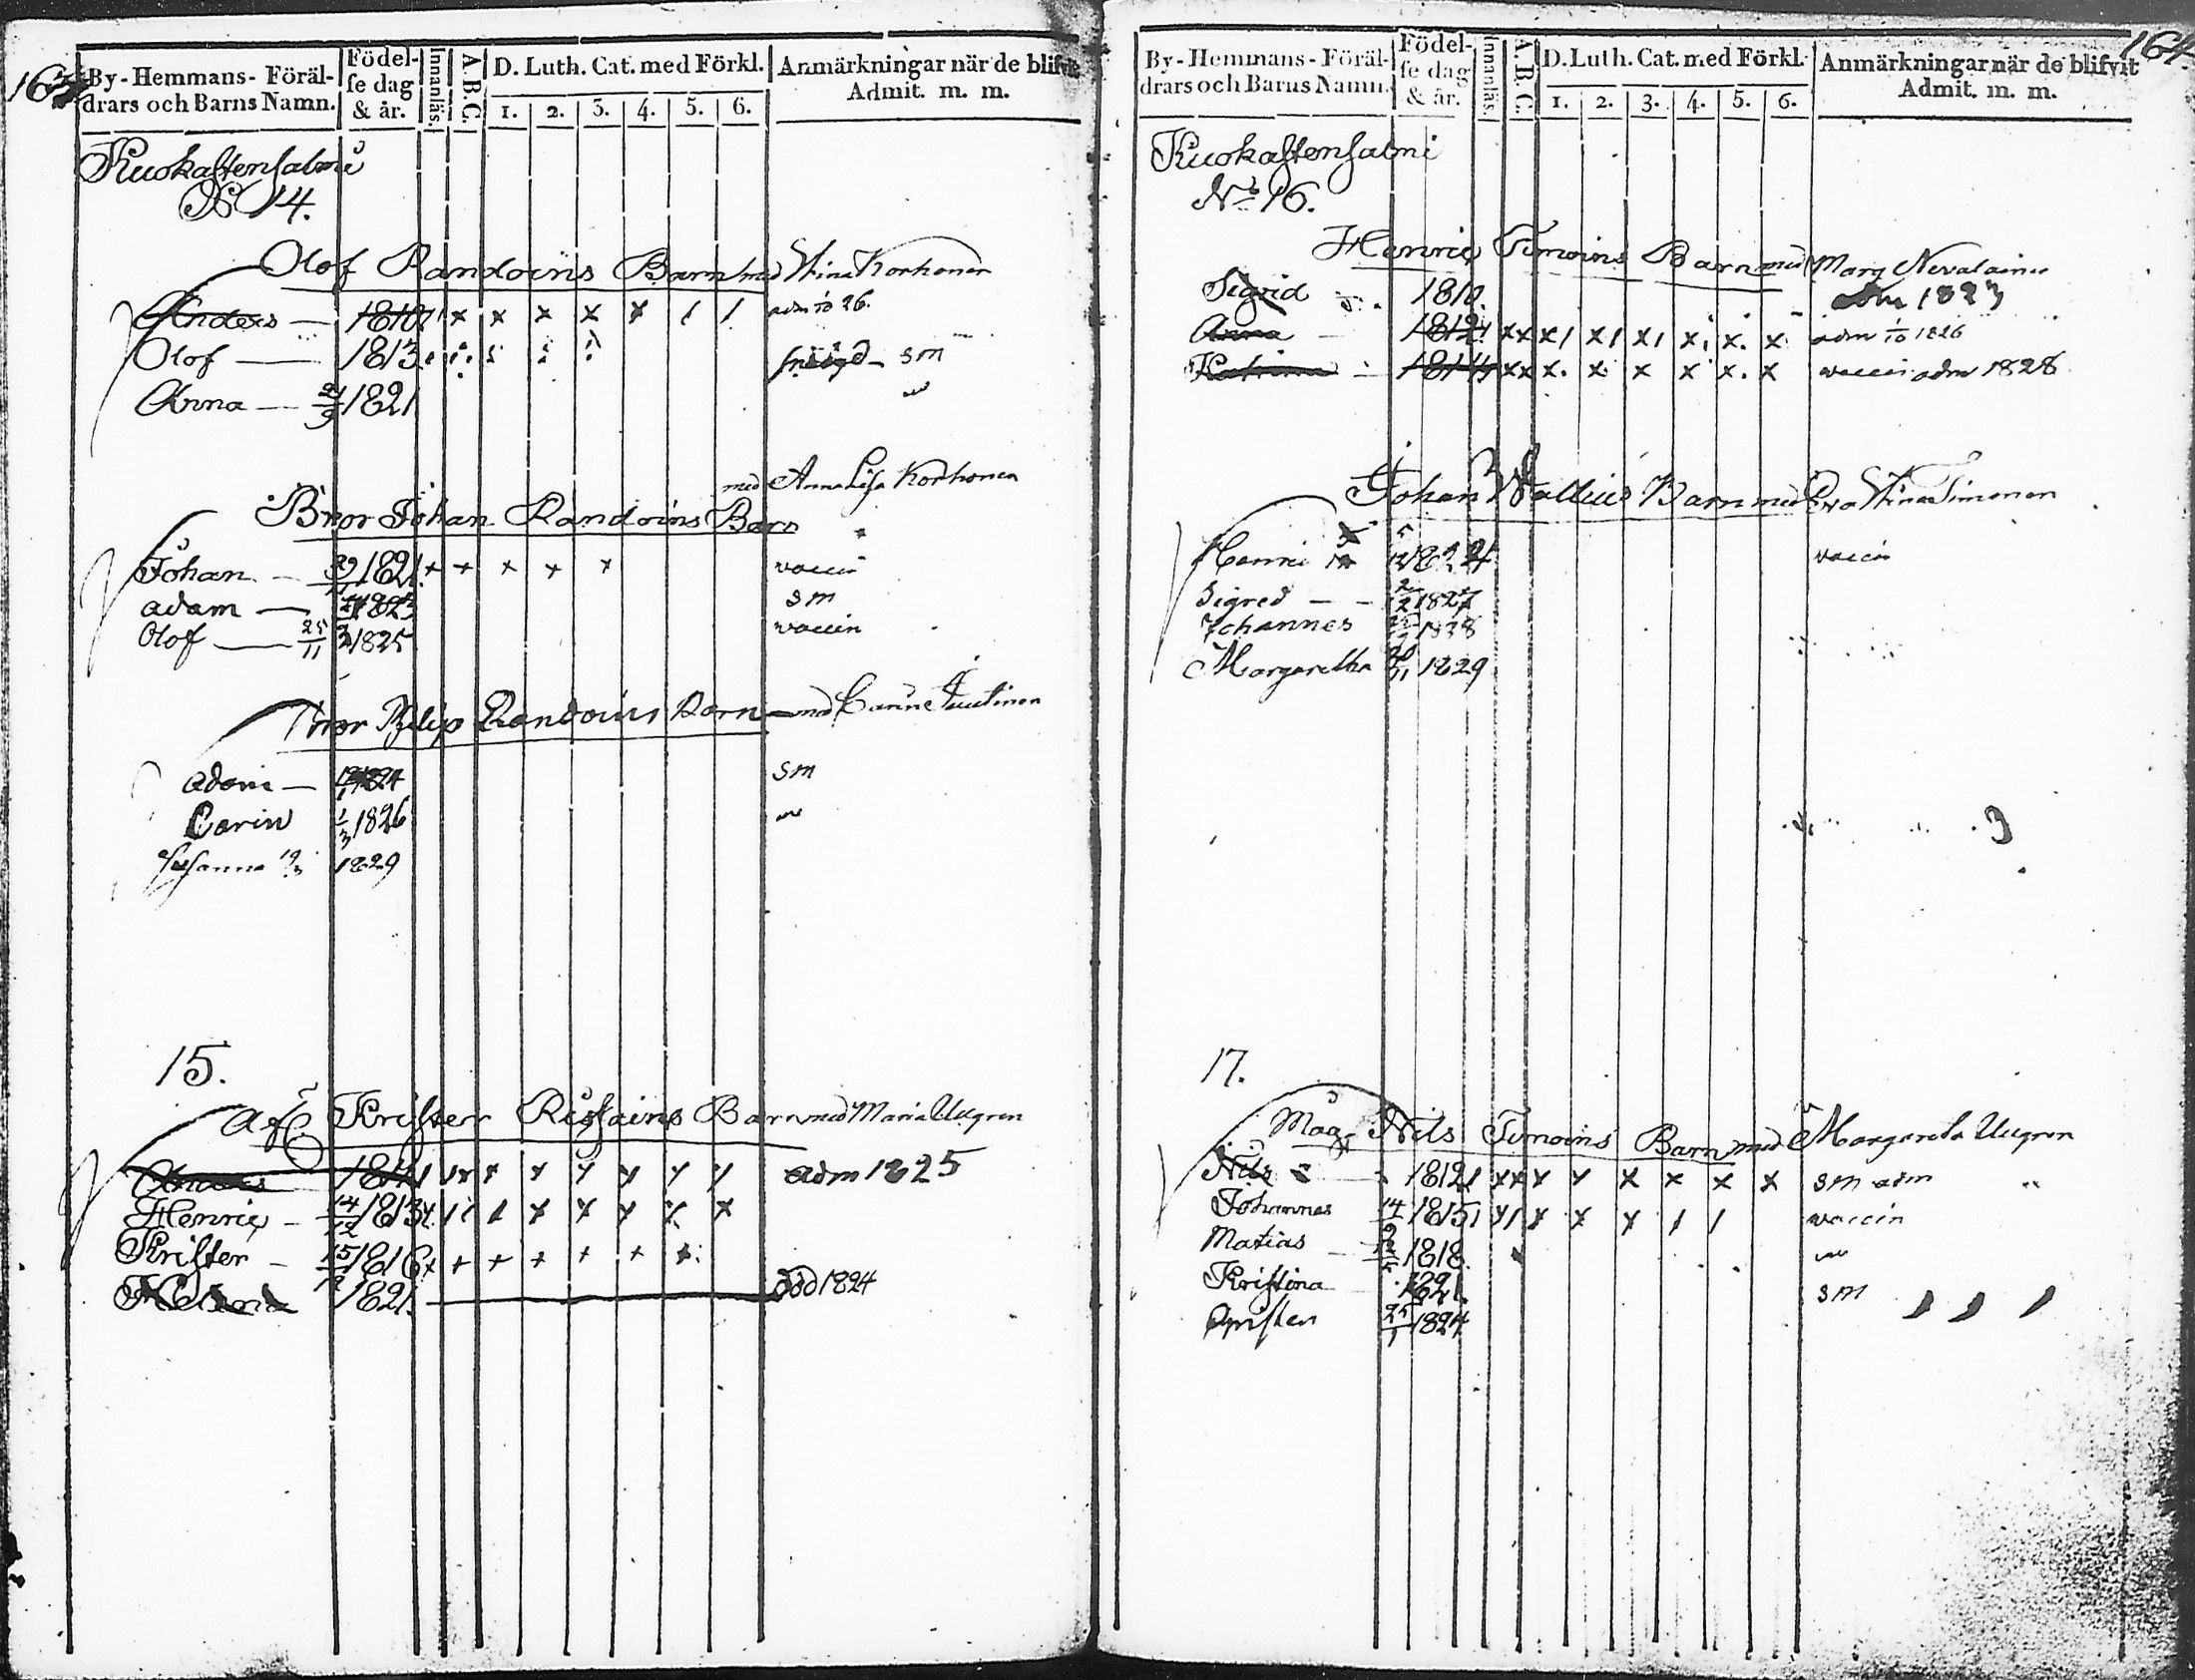 By-Hemmans-Föräl-
drars och Barns Namn.
Födel-
se dag
& år.
Innanläs.
A.B.C.
D. Luth. Cat. med Förkl.
1. 2. 3. 4. 5. 6.
Anmärkningar när de blifvit
Admit. m. m.
Kuokastensalmi
No 14.
Olof Pandoins Barn med Stina Korhonen
Anders — 1810 x x x x x 1 1 adm 26.
Olof — 1813 sm
Anna — 1821
med Anna Lisa Korhonen
Bror Johan Randoins Barn
Johan — 1821 x x x x x vaccin
Adam — 1823 sm
Olof — 25/11 1825 vaccin
Bror Philip Randoins Barn med Carin
Adam — 1824 sm
Carin 1/3 1826
Susanna 1829
15.
Afl. Krister Barn med Maria
Anders 1811 x x x x x x x adm 1825
Henric — 14/12 1813 x x x x x
Krister — 15/12 1816 x x x x x x
Helena 1821 död 1824
164.
By-Hemmans-Föräl-
drars och Barns Namn.
Födel-
se dag
& år.
Innanläs.
A.B.C.
D. Luth. Cat. med Förkl.
1. 2. 3. 4. 5. 6.
Anmärkningar när de blifvit
Admit. m. m.
Kuokastensalmi
No 16.
Henric Timoins Barn med Marg Nevalainen
Sigrid 1810. adm 1827
Anna — 1812 xx x1 x1 x1 x x x adm 1/10 1826
Katrina 1814 xx x x x x x x vaccin adm 1828
Johan Wallius Barn med Eva Stina Timonen
Henric 1824 vaccin
Sigred — 1827
Johannes 1828
Margaretha 1829
17.
Måg Nils Timoins Barn med Margareta
Nils 1812 xx x x x x x x sm adm
Johannes 14 1815 x1 x x x 1 1 vaccin
Matias 1818
Kristina 1821 sm
Christen 25/1 1824